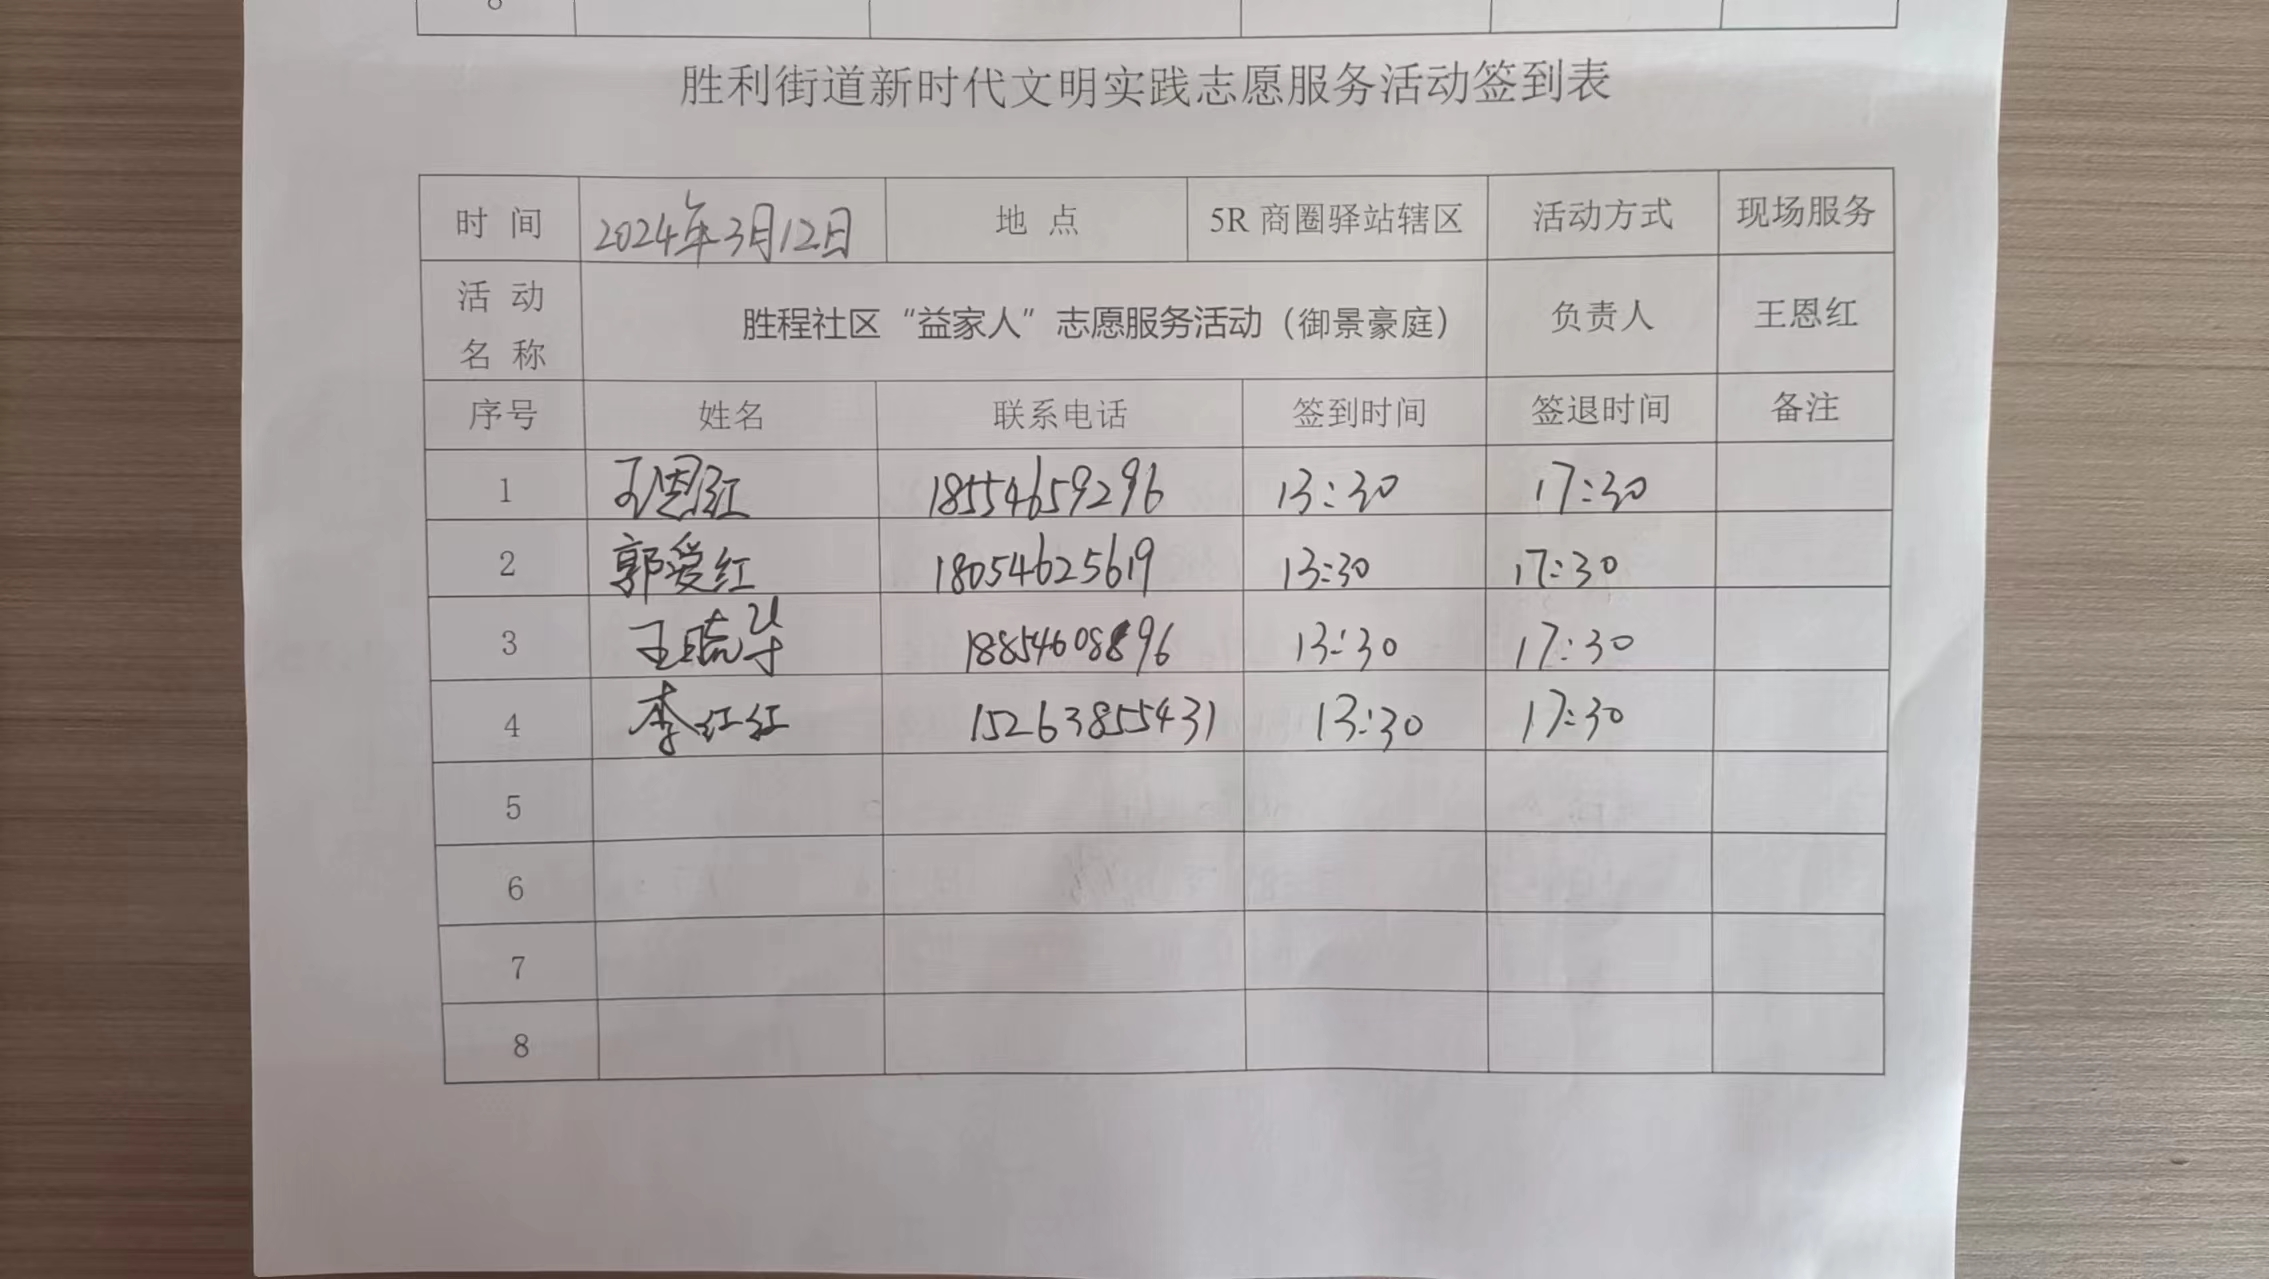 8
胜利街道新时代文明实践志愿服务活动签到表
时 间 2024年3月12日 地 点 5R 商圈驿站辖区 活动方式 现场服务
活 动
名 称 胜程社区“益家人”志愿服务活动（御景豪庭） 负责人 王恩红
序号 姓名 联系电话 签到时间 签退时间 备注
1 王恩红 18554659296 13:30 17:30
2 郭爱红 18054625619 13:30 17:30
3 王 18854608896 13:30 17:30
4 李红红 15263855431 13:30 17:30
5
6
7
8